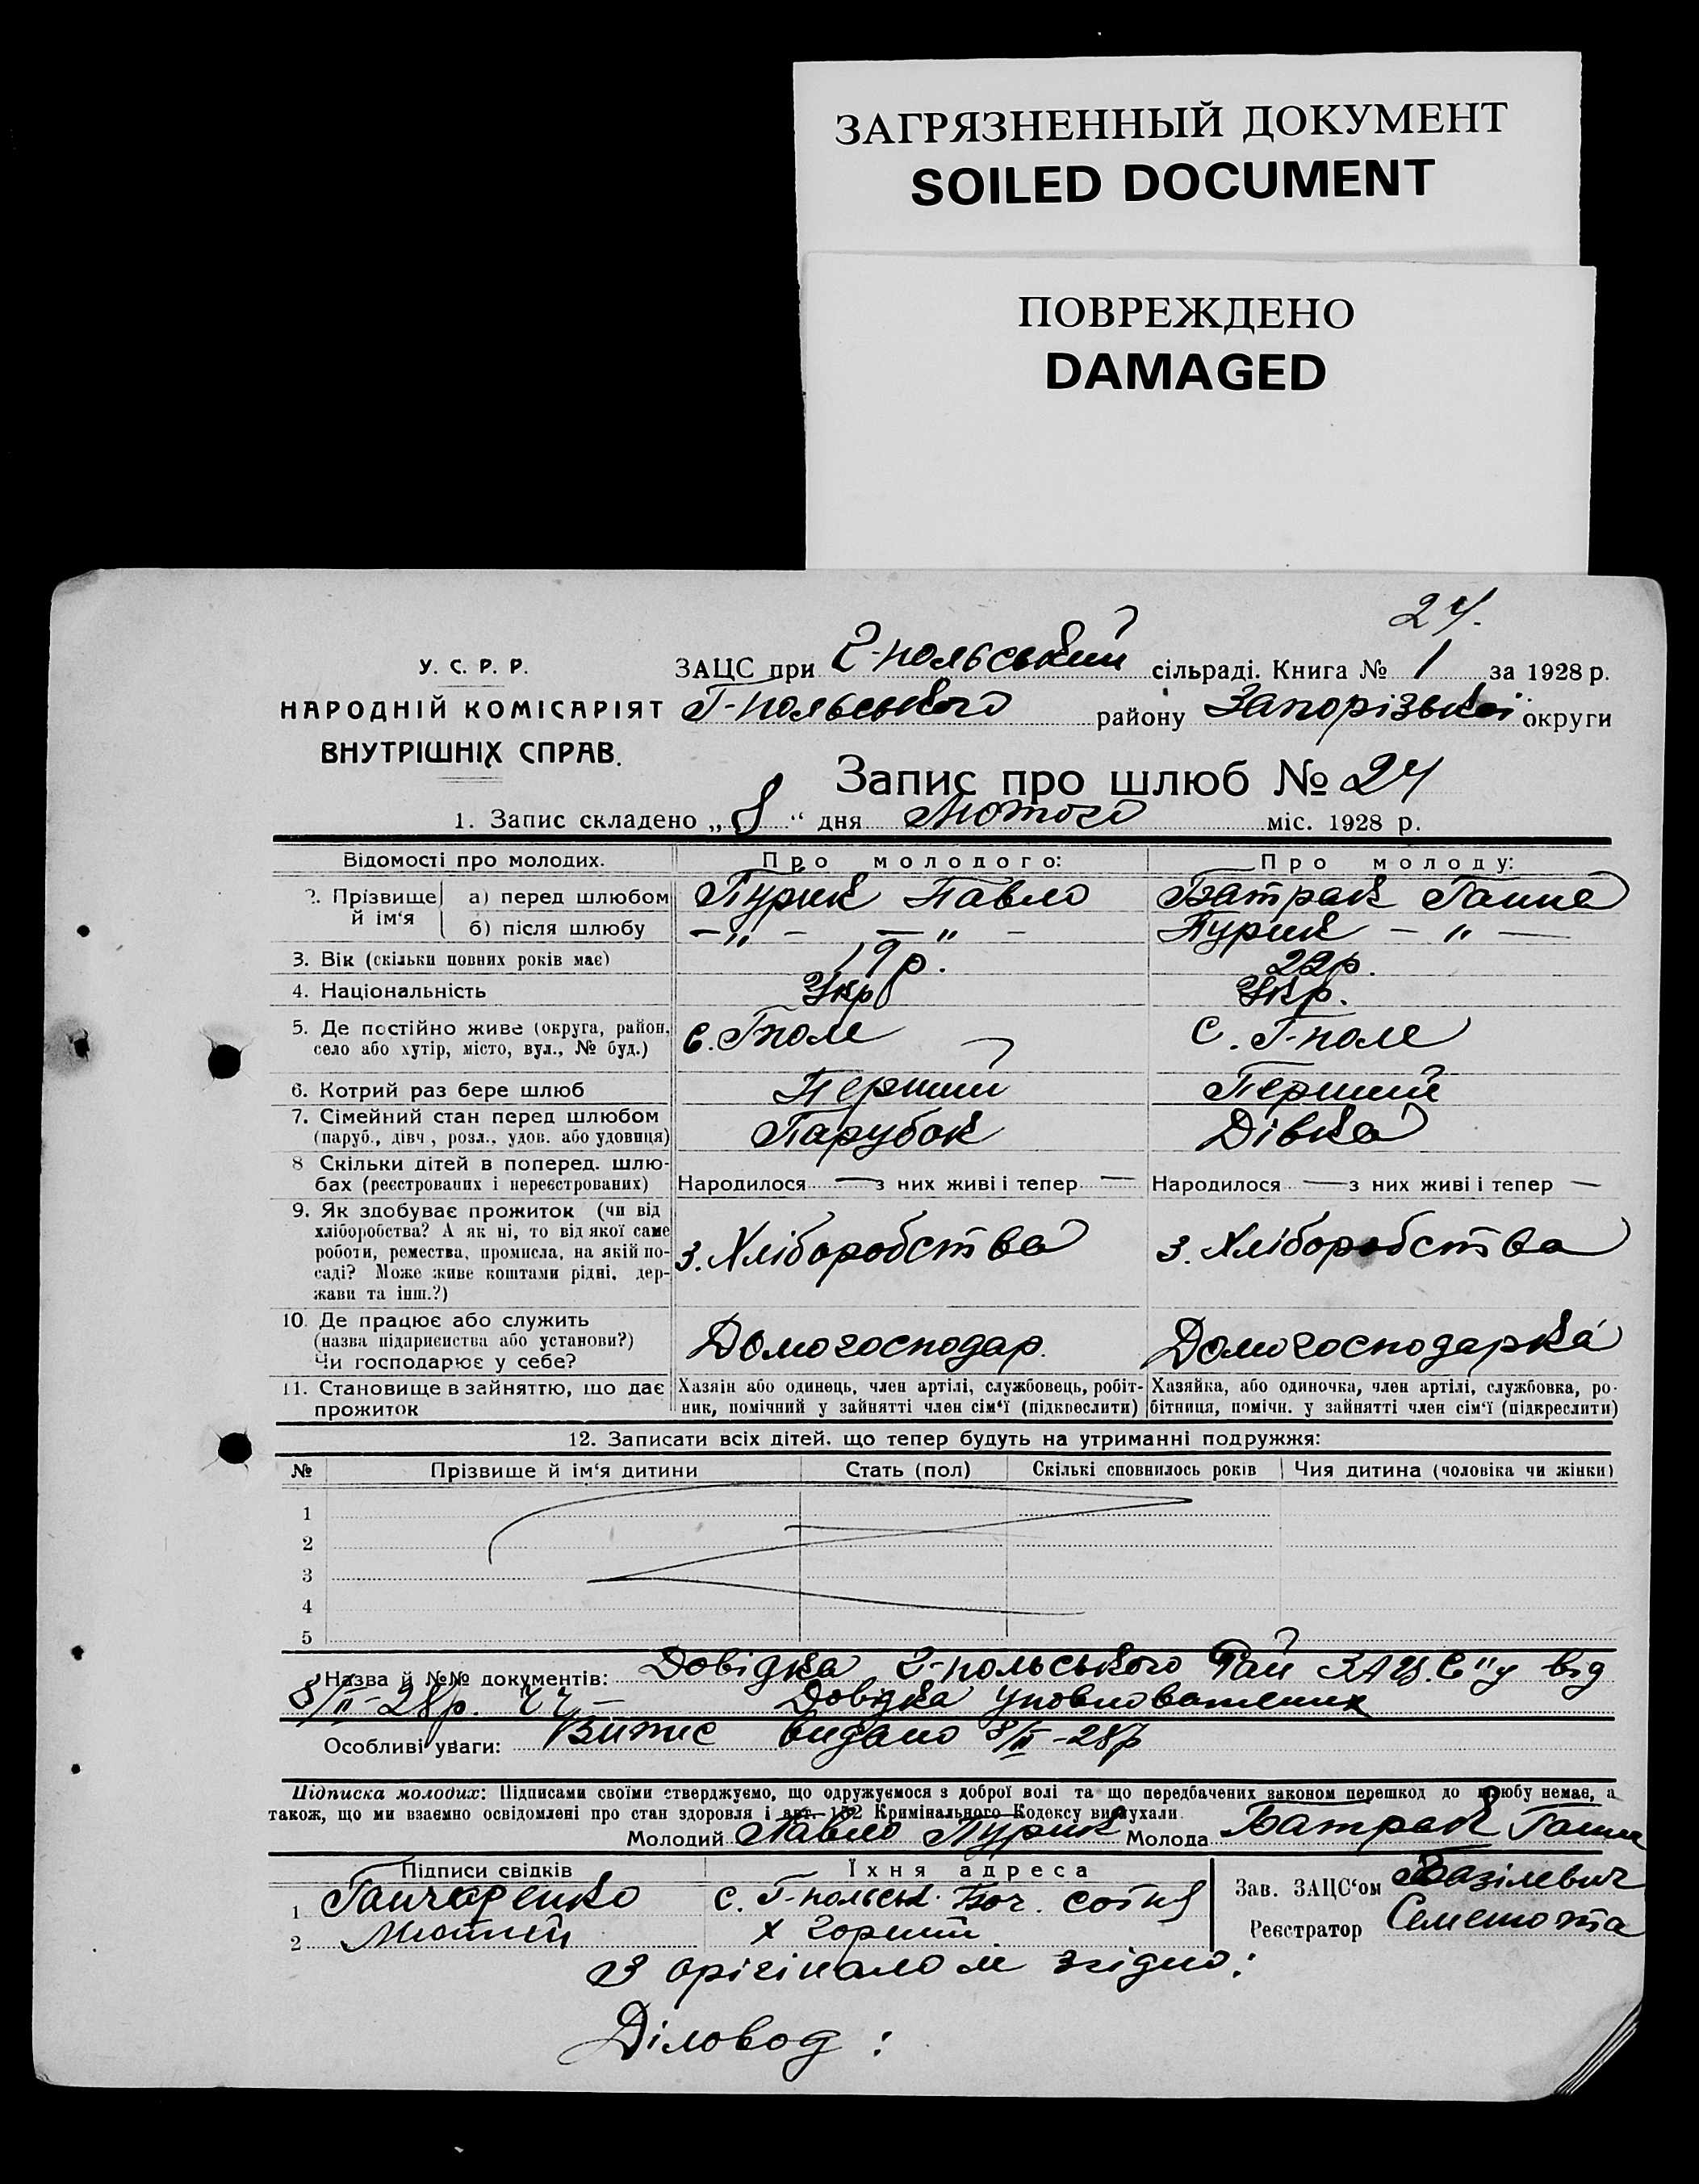 ЗАГРЯЗНЕННЫЙ ДОКУМЕНТ
SOILED DOCUMENT
ПОВРЕЖДЕНО
DAMAGED
24.
У. С. Р. Р.
НАРОДНІЙ КОМІСАРІЯТ
ВНУТРІШНІХ СПРАВ.
ЗАЦС при Г-польський сільраді. Книга № 1 за 1928 р.
Г-польського району Запорізької округи
Запис про шлюб № 24
1. Запис складено „ 8 “ дня Лютого міс. 1928 р.
Відомості про молодих. Про молодого: Про молоду:
2. Прізвище й ім‘я а) перед шлюбом Пурик Павло Батрак Ганна
б) після шлюбу — „ — — „ — Пурик — „ —
3. Вік (скільки повних років має) 19 р. 22 р.
4. Національність Укр Укр.
5. Де постійно живе (округа, район, село або хутір, місто, вул., № буд.) с. Гполе с. Г-поле
6. Котрий раз бере шлюб Перший Перший
7. Сімейний стан перед шлюбом (паруб., дівч., розл., удов. або удовиця) Парубок Дівка
8 Скільки дітей в поперед. шлюбах (реєстрованих і нереєстрованих) Народилося — з них живі і тепер — Народилося — з них живі і тепер —
9. Як здобуває прожиток (чи від хліборобства? А як ні, то від якої саме роботи, ремества, промисла, на якій посаді? Може живе коштами рідні, держави та інш.?) з. Хліборобства з. Хліборобства
10. Де працює або служить (назва підприєнства або установи?) Чи господарює у себе? Домогосподар. Домогосподарка
11. Становище в зайняттю, що дає прожиток Хазяін або одинець, член артілі, службовець, робітник, помічний у зайнятті член сім‘ї (підкреслити) Хазяйка, або одиночка, член артілі, службовка, робітниця, помічн. у зайнятті член сім‘ї (підкреслити)
12. Записати всіх дітей, що тепер будуть на утриманні подружжя:
№ Прізвище й ім‘я дитини Стать (пол) Скількі сповнилось років Чия дитина (чоловіка чи жінки)
1
2
3
4
5
Назва й №№ документів: Довідка Г-польського Рай ЗАЦ.С"у від
8/II-28р. Довідка уповноважених
Особливі уваги: Витис видано 8/II-28р
Підписка молодих: Підписами своїми стверджуємо, що одружуємося з доброї волі та що передбачених законом перешкод до шлюбу немає, а
також, що ми взаємно освідомлені про стан здоровля і арт. 152 Кримінального Кодексу вислухали.
Молодий Павло Пурик Молода Батрак Ганна
Підписи свідків Їхня адреса
1 Ганчаренко с. Г-польськ. Боч. сотня
2 х Горшти
Зав. ЗАЦС‘ом Базілевич
Реєстратор Семенота
З орігіналом згідно:
Діловод :